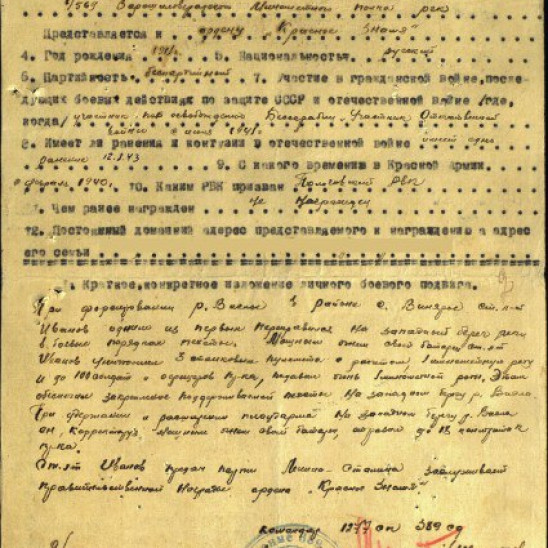 1/569 Ворошиловградской Минометный полка РГК
Представляется к ордену "Красное Знамя"
4. Год рождения 1918г. 5. Национальность русский
6. Партийность беспартийный 7. Участие в гражданской войне, после-
дующих боевых действиях по защите СССР и отечественной войне /где,
когда/ участник по освобождению Бессарабии, Участник Отечественной
войны с июня 1941г.
8. Имеет ли ранения и контузии в отечественной войне имеет одно
ранение 12.2.43 9. С какого времени в Красной Армии
с февраль 1940г. 10. Каким РВК призван РВК
11. Чем ранее награжден Не награжден
12. Постоянный домашний адрес представляемого к награждению и адрес
его семьи
1. Краткое, конкретное изложение личного боевого подвига.
При форсировании р. Висла в районе с. ст. л-т
Иванов одним из первых переправился на западный берег реки
в боевых порядках пехоты. Мощным огнем своей батареи ст. л-т
Иванов уничтожил 3 станковых пулемета с расчетом, 1 минометную роту
и до 100 солдат и офицеров пр-ка, подавил огонь 1 минометной роты. Этим
обеспечил закрепление пехоты на западном берегу р. Висла.
При удержании и расширении плацдарма на западном берегу р. Висла
он корректируя мощным огнем своей батареи, отразил до 18 контратак
пр-ка.
Ст. л-т Иванов предан партии Ленина - Сталина заслуживает
правительственной награды ордена "Красное Знамя".
Командир 1277 сп 389 сд